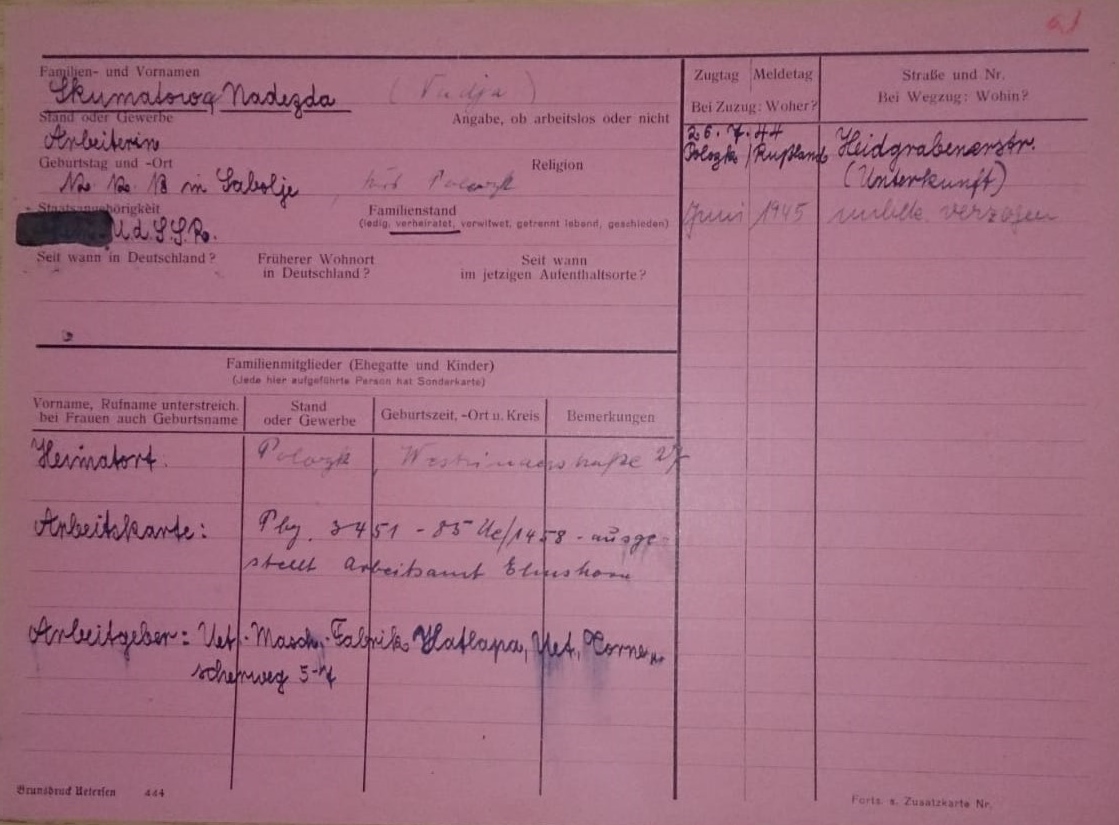 Familien- und Vornamen
Skumatowoq Nadezda (Nadja)
Stand oder Gewerbe
Angabe, ob arbeitslos oder nicht
Arbeiterin
Geburtstag und -Ort
Religion
12. 12. 13 in Sabolje
Staatsangehörigkeit
Familienstand
(ledig, verheiratet, verwitwet, getrennt lebend, geschieden)
U.d.S.S.R.
Seit wann in Deutschland?
Früherer Wohnort in Deutschland?
Seit wann im jetzigen Aufenthaltsorte?
Familienmitglieder (Ehegatte und Kinder)
(Jede hier aufgeführte Person hat Sonderkarte)
Vorname, Rufname unterstreich. bei Frauen auch Geburtsname
Stand oder Gewerbe
Geburtszeit, -Ort u. Kreis
Bemerkungen
Heimatort. Polozk, 27
Arbeitskarte: Pbg. 3451 - 85 Ue/1458 - ausge-
stellt Arbeitsamt Elmshorn
Arbeitgeber: Uet.-Masch.-Fabrik Hatlapa, Uet,
scherweg 5-7
Brunsdruck Uetersen 444
Zugtag
Meldetag
Bei Zuzug: Woher?
Straße und Nr.
Bei Wegzug: Wohin?
26.7.44
Polozk/Rußland
Heidgrabenerstr.
(Unterkunft)
Juni 1945 unbek. verzogen
Forts. s. Zusatzkarte Nr.